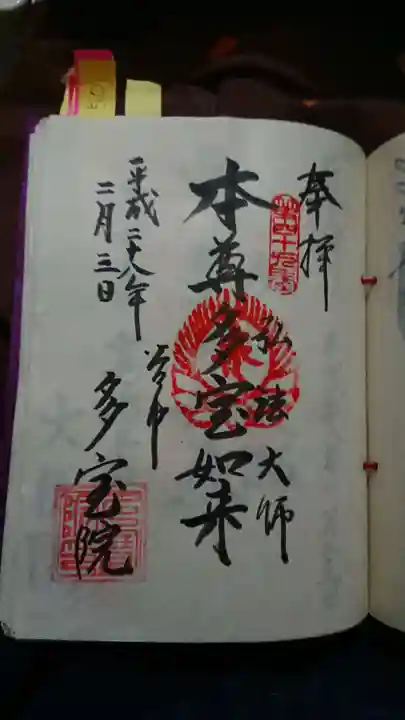 奉拝
第四十九番
弘法大師
本尊多宝如来
谷中
多宝院
平成二十八年
二月三日